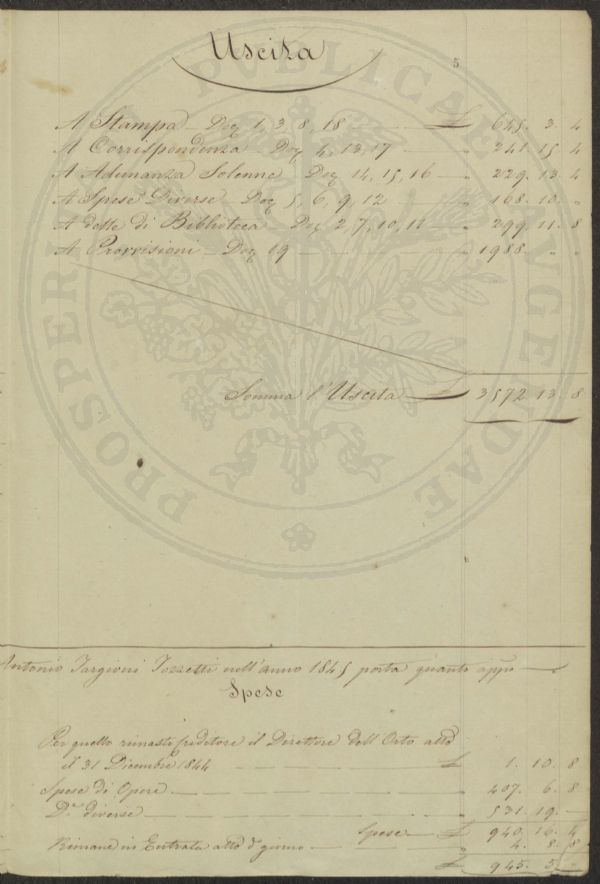 Uscita
5
A Stampa Doc 1, 3, 8, 18 £ 645. 3. 4
A Corrispondenza Doc 4, 13, 17 " 241. 15. 4
A Adunanza Solenne Doc 14, 15, 16 " 229. 13. 4
A Spese Diverse Doc 5, 6, 9, 12 " 168. 10. "
A dotte di Biblioteca Doc 2, 7, 10, 11 " 299. 11. 8
A Provvisioni Doc 19 " 1988. " "
Somma l'Uscita £ 3572. 13. 8
Antonio Targioni Tozzetti nell'anno 1845 porta quanto appo
Spese
Per quello rimasto Creditore il Direttore dell'Orto atto
il 31 Dicembre 1844 £ 1. 10. 8
Spese di Opere " 407. 6. 8
De diverse " 531. 19. —
Spese £ 940. 16. 4
Rimane in Entrata atto do giorno " 4. 8. 8
£ 945. 5. "
PROSPERITATI PUBLICAE AUGENDAE